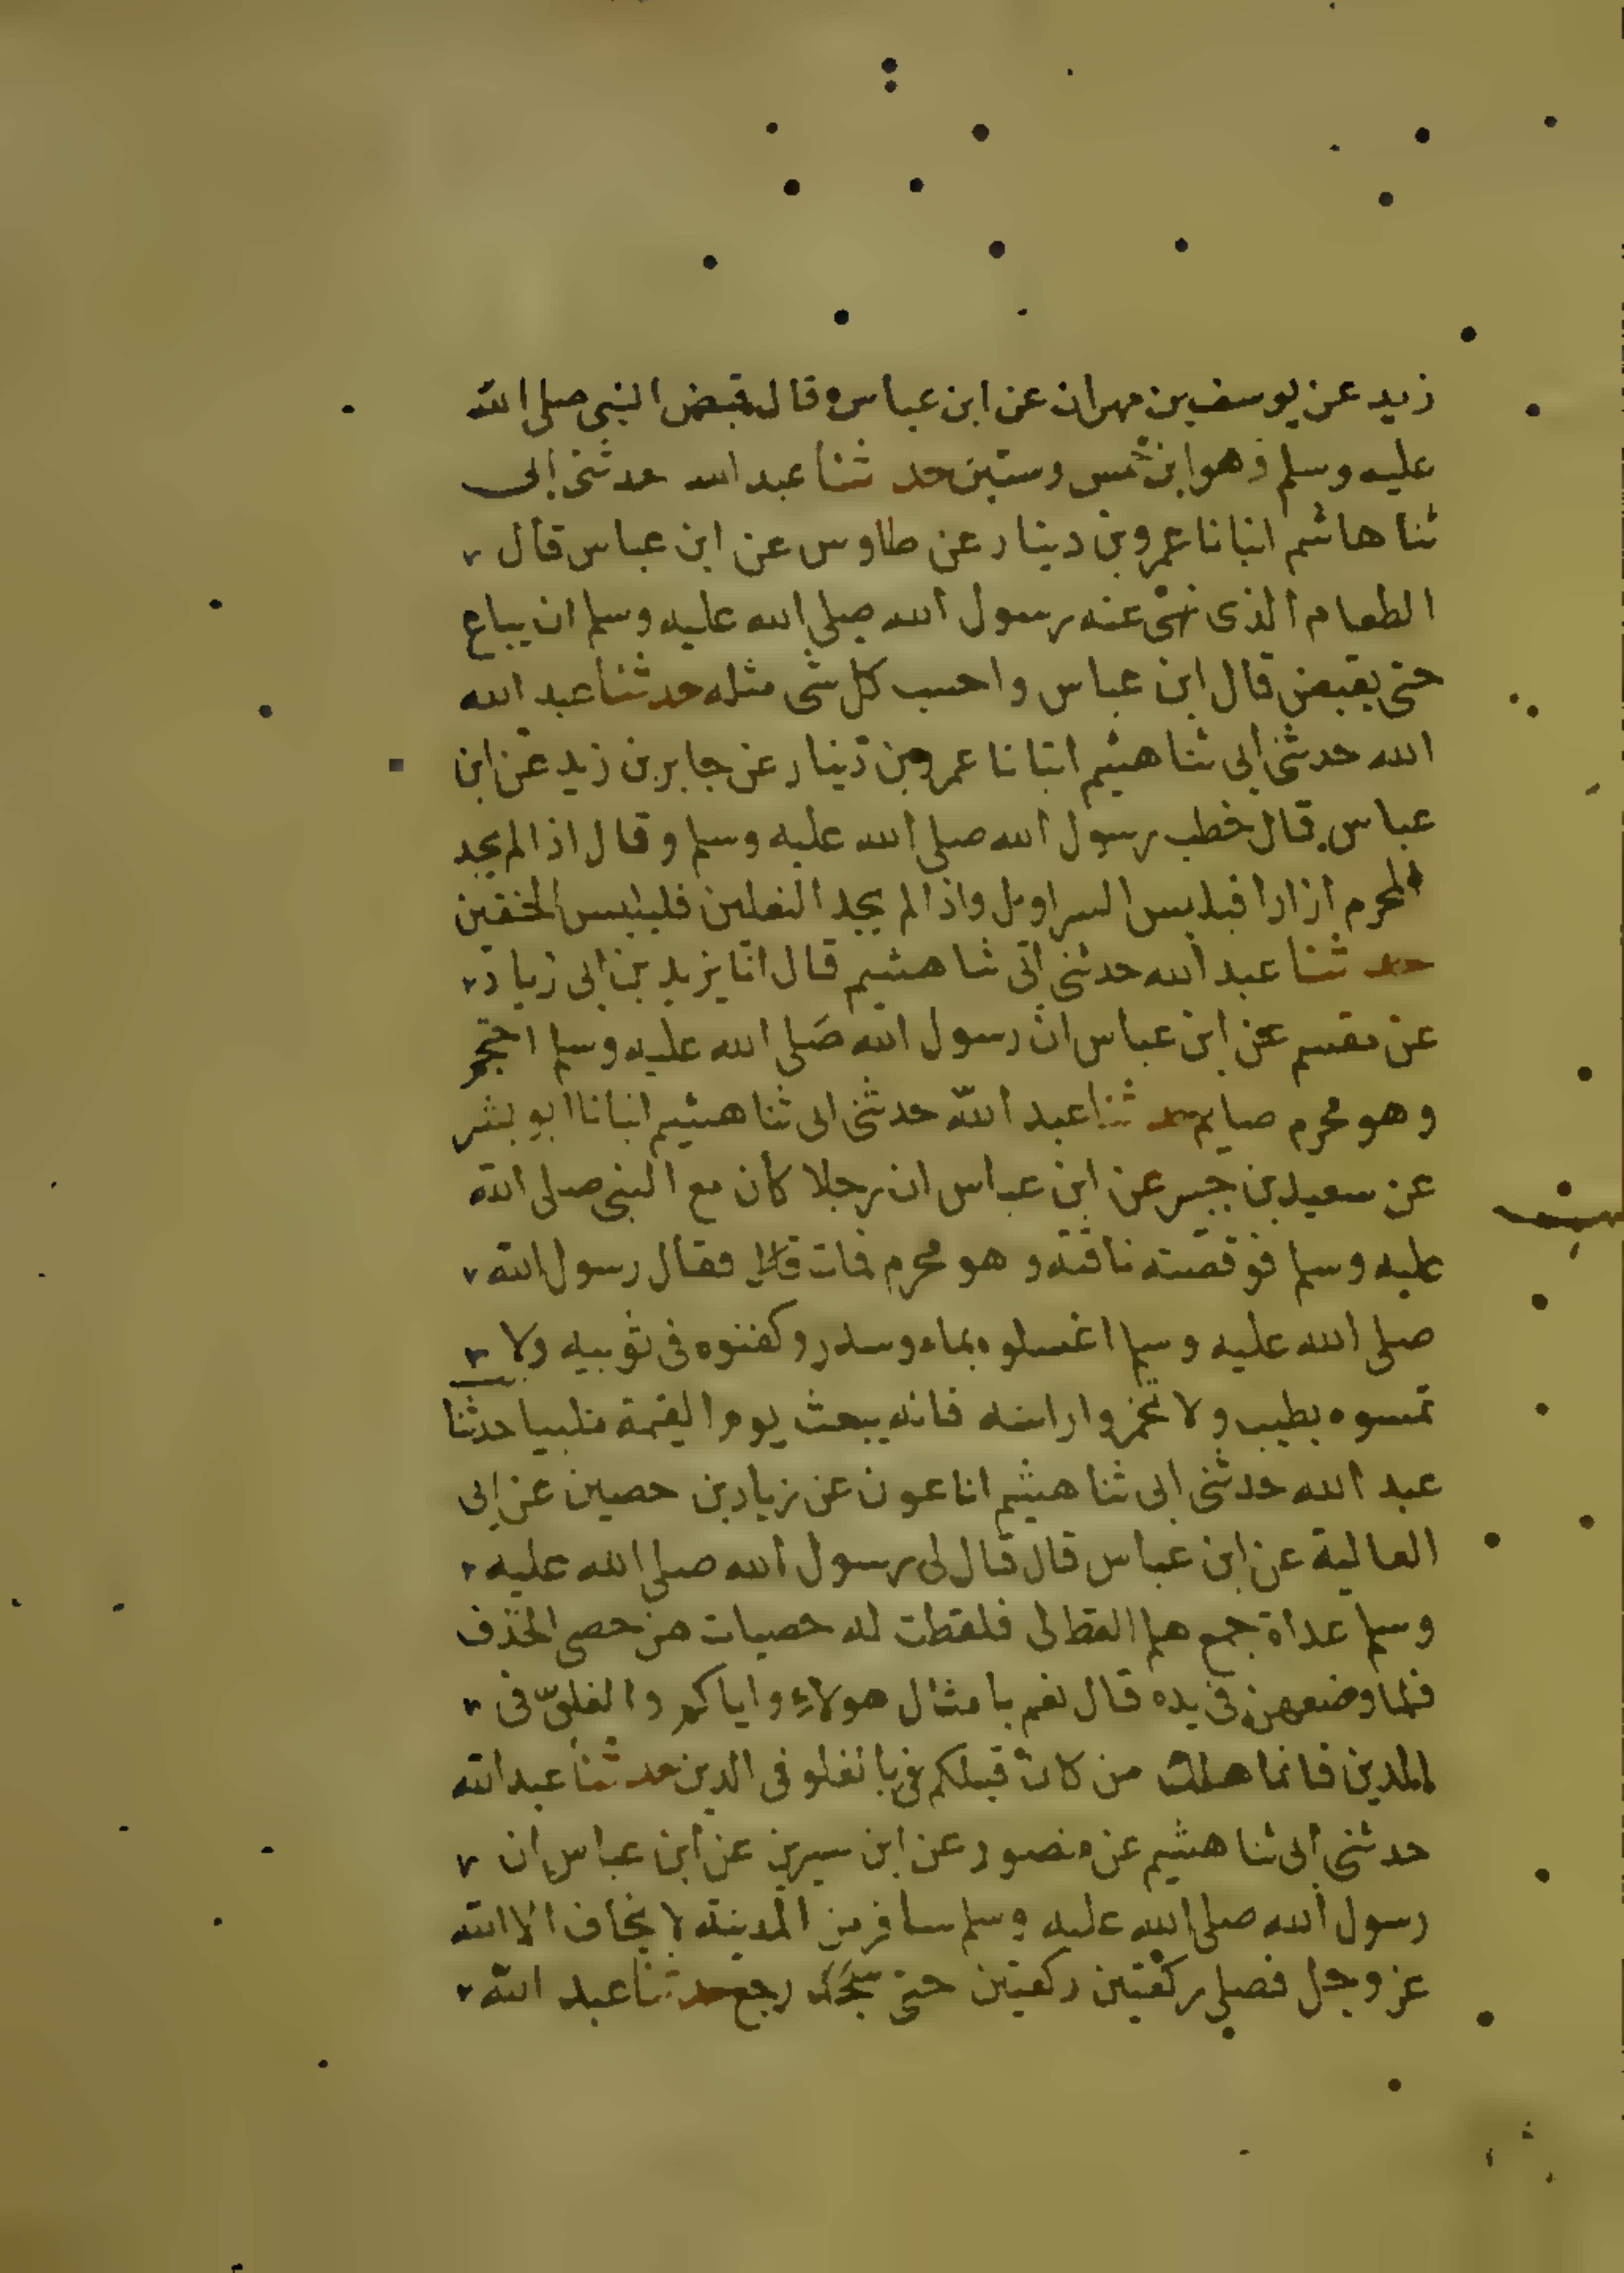 زيد عن يوسف بن مهران عن ابن عباس قال قبض النبي صلى الله
عليه وسلم وهو ابن خمس وستين حد ثنا عبد الله حدثنى ابى
ثنا هاشم انبانا عمرو بن دينار عن طاوس عن ابن عباس قال
الطعام الذى نهى عنه رسول الله صلى الله عليه وسلم ان يباع
حتى يقبض قال ابن عباس واحسب كل شى مثله حدثنا عبد الله
الله حدثنى ابى ثنا هشيم انبانا عمرو بن دينار عن جابر بن زيد عن ابن
عباس قال خطب رسول الله صلى الله عليه وسلم وقال اذا لم يجد
المحرم ازارا فيلبس السراويل واذا لم يجد النعلين فليلبس الخفين
حد ثنا عبد الله حدثنى ابى ثنا هشيم قال انا يزيد بن ابى زياد
عن مقسم عن ابن عباس ان رسول الله صَلى الله عليه وسلم احتجم
وهو محرم صايم حد ثنا عبد الله حدثنى ابى ثنا هشيم انبانا ابو بشر
عن سعيد بن جبير عن ابن عباس ان رجلا كان مع النبى صلى الله
عليه وسلم فوقصته ناقته وهو محرم فمات فقال رسول الله
صلى الله عليه وسلم اغسلوه بماء وسدر وكفنوه فى ثوبيه ولا
تمسوه بطيب ولا تخمروا راسه فانه يبعث يوم القيمة ملبيا حدثنا
عبد الله حدثنى ابى ثنا هشيم انا عون عن زياد بن حصين عن ابى
العالية عن ابن عباس قال قال لى رسول الله صلى الله عليه
وسلم غداة جمع هلم القط لى فلقطت له حصيات من حصى الخذف
فلما وضعهن فى يده قال نعم بامثال هولاءِ واياكم والغلوّ فى
الدين فانما هلك من كان قبلكم بالغلو فى الدين حد ثنا عبد الله
حدثنى ابى ثنا هشيم عن منصور عن ابن سيرين عن ابن عباس ان
رسول الله صلى الله عليه وسلم سافر من المدينة لا يخاف الا الله
عز وجل فصلى ركعتين ركعتين حتى رجع حد ثنا عبد الله